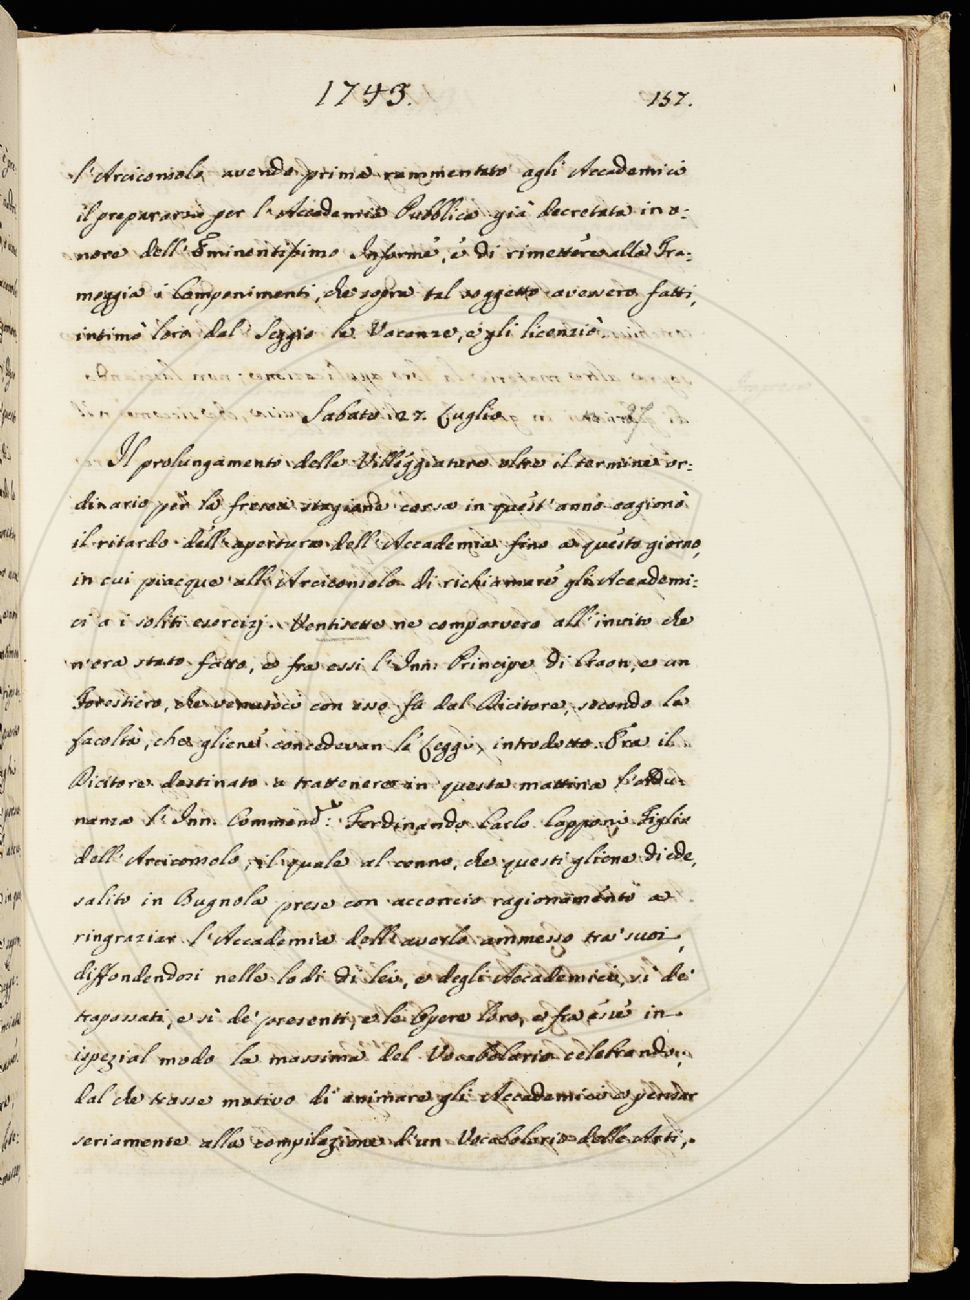 1743.
157.
l'Arciconsolo avendo prima rammentato agli Accademici
il prepararsi per l'Accademia Pubblica già decretata in o:
nore dell'Eminentissimo Informe, e di rimettere alla Tra:
moggia i Componimenti, che sopra tal soggetto avessero fatti,
intimò loro dal Seggio le Vacanze, e gli licenziò.
Sabato 27. Luglio
Il prolungamento delle Villeggiature oltre il termine or:
dinario per la fresca stagione corsa in quest'anno cagionò
il ritardo dell'apertura dell'Accademia fino a questo giorno,
in cui piacque all'Arciconsolo di richiamare gli Accademi:
ci a i soliti esercizj. Ventisette ne comparvero all'invito che
n'era stato fatto, e fra essi l'Inn: Principe di Craon, e un
Forestiero, che venutoci con esso fu dal Dicitore, secondo la
facoltà, che gliene concedevan le Leggi, introdotto. Era il
Dicitore destinato a trattenere in questa mattina l'adu:
nanza l'Inn: Commend.r Ferdinando Carlo Capponi Figlio
dell'Arciconsolo, il quale al cenno, che questi gliene diede,
salito in Bugnola prese con acconcio ragionamento a
ringraziar l'Accademia dell'averlo ammesso tra' suoi,
diffondendosi nelle lodi di lei, e degli Accademici, sì de'
trapassati, e sì de' presenti, e le Opere loro, e fra esse in
ispezial modo la massima del Vocabolario celebrando;
dal che trasse motivo di animare gli Accademici a pensar
seriamente alla compilazione d'un Vocabolario delle Arti,